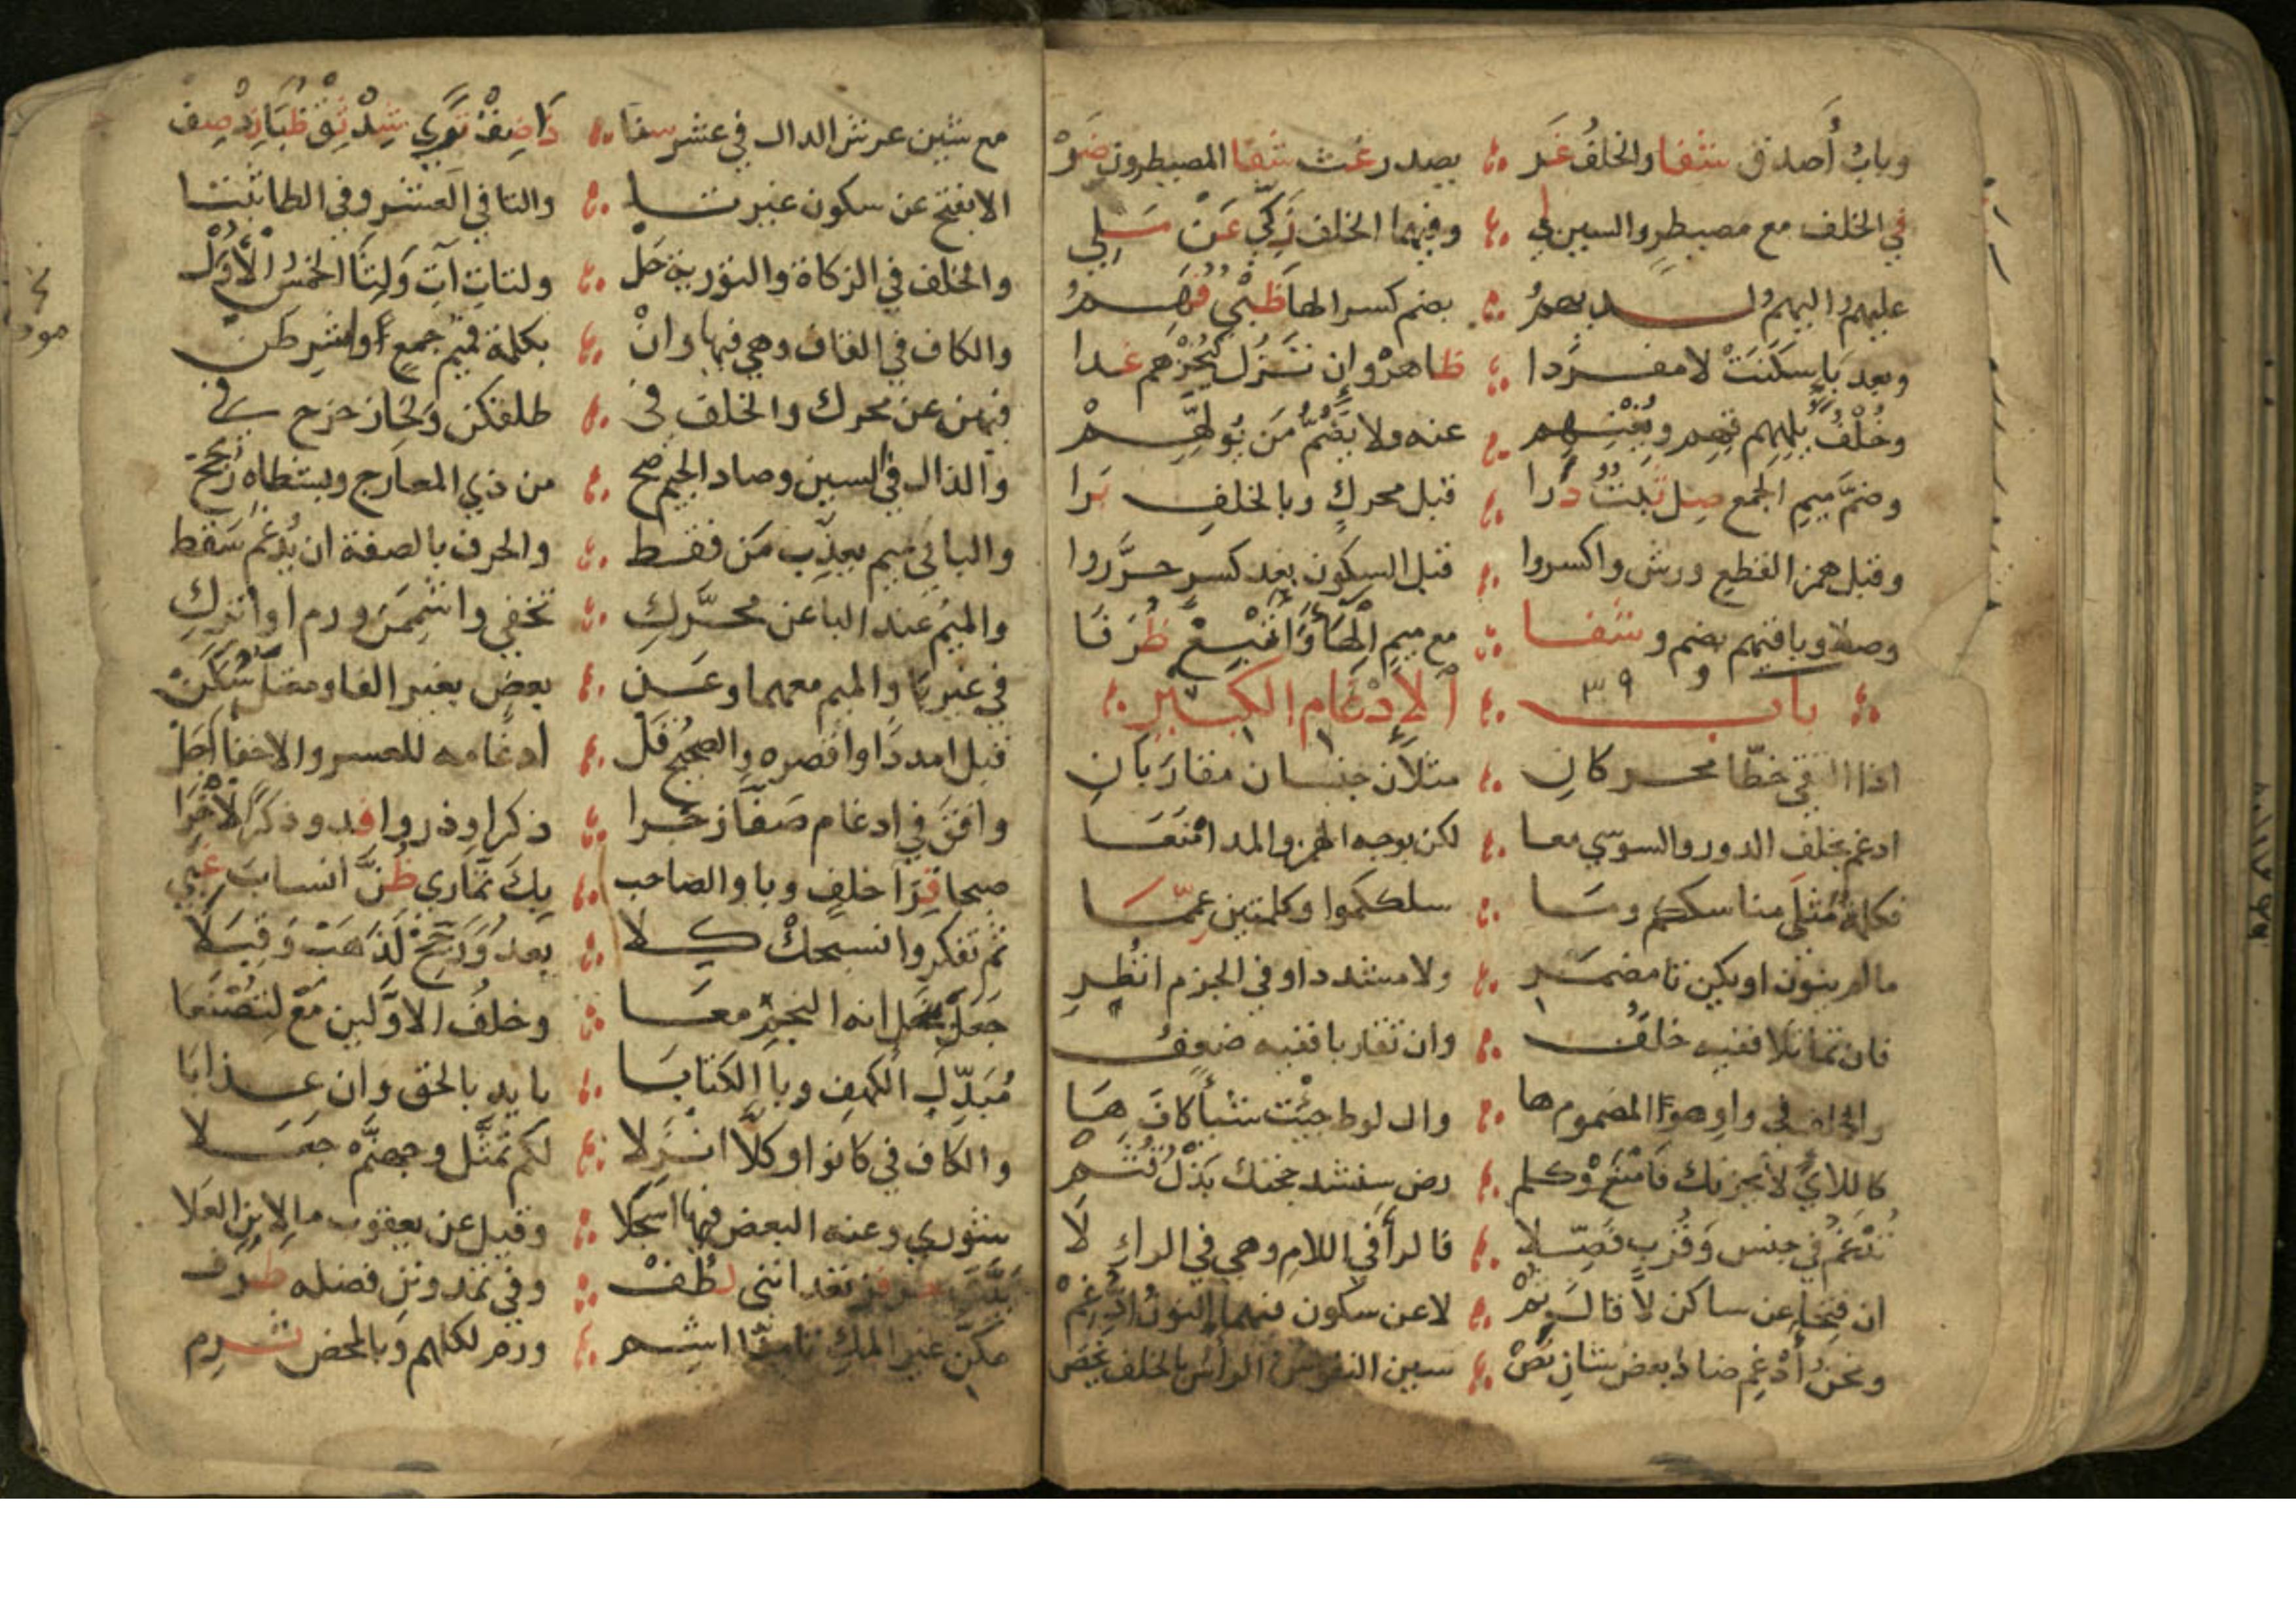 وباب أصدق شفا والخلف غر ؞ يصدر غث شفا المصيطرون ضر
في الخلف مع مصيطر والسين لي ؞ وفيهما الخلف زكي عن ملي
عليهم واليهم ولديهم ؞ بضم كسر الها ظبي فهم
وبعد ياء سكنت لا مفردا ؞ ظاهر وإن تزل كيخزهم غدا
وخلف يلههم قهم ويغنهم ؞ عنه ولا يضم من يولهم
وضم ميم الجمع صل ثبت درا ؞ قبل محرك وبالخلف برا
وقبل همز القطع ورش واكسروا ؞ قبل السكون بعد كسر حرروا
وصلا وباقيهم بضم وشفا ؞ مع ميم الهاء وأتبع ظرفا
باب ؞ الإدغام الكبير
٣٩
اذا التقى خطا محركان ؞ مثلان جنسان مقاربان
ادغم بخلف الدور والسوسي معا ؞ لكن بوجه الهمز والمد امنعا
فكلمة مثلي مناسككم وما ؞ سلككموا وكلمتين عمما
مالم ينون او يكن تا مضمر ؞ ولا مشددا وفي الجزم انظر
فان تماثلا ففيه خلف ؞ وان تقاربا ففيه ضعف
والخلف في واو هو المضموم ها ؞ وال لوط جئت شيأ كاف ها
كاللاي لا يحزنك فامنع وكلم ؞ رض سنشد حجتك بذل قثم
تدغم في جنس وقرب فصلا ؞ فالرا في اللام وهي في الراء لا
ان فتحا عن ساكن لا قال ثم ؞ لا عن سكون فيهما النون ادغم
ونحن أدغم ضاد بعض شان نص ؞ سين النفوس الرأس بالخلف يخص
مع شين عرش الدال في عشر سنا ؞ ذا ضق ترى شد ثق ظبا زد صف
الا بفتح عن سكون غير تا ؞ والتا في العشر وفي الطا ثبتا
والخلف في الزكاة والتورية حل ؞ ولتات آت ولثا الخمس الأول
والكاف في القاف وهي فيها وان ؞ بكلمة فميم جمع واشرطن
فيهن عن محرك والخلف في ؞ طلقكن ولحا زحزح في
والذال في السين وصاد الجيم صح ؞ من ذي المعارج وبشطاه رجح
والبا في ميم يعذب من فقط ؞ والحرف بالصفة ان يدغم سقط
والميم عند البا عن محرك ؞ تخفي واشممن ورم او اترك
في غير با والميم معهما وعن ؞ بعض بغير الفا ومعتل سكن
قبل امددا واقصره والصحيح قل ؞ ادغامه للعسر والاخفا أجل
وافق في ادغام صفا زجرا ؞ ذكرا وذروا فد وذكرا لأخرى
صبحا قرا خلف وبا والصاحب ؞ بك تماري ظن انساب غبي
ثم تفكروا نسبحك كلا ؞ بعد ورجح لذهب وقبلا
جعل نحل انه النجم معا ؞ وخلف الاولين مع لتصنعا
مبدل الكهف وبا الكتابا ؞ بايد بالحق وان عذابا
والكاف في كانوا وكلا انزلا ؞ لكم تمثل وجهنم جعلا
شوري وعنه البعض فيها اسجلا ؞ وقيل عن يعقوب ما لابن العلا
بيت حز فز تعدانني لطف ؞ وفي تمدونن فضله ظرف
مكن غير المك تامنا اشم ؞ ورم لكلهم وبالمحض ثرم